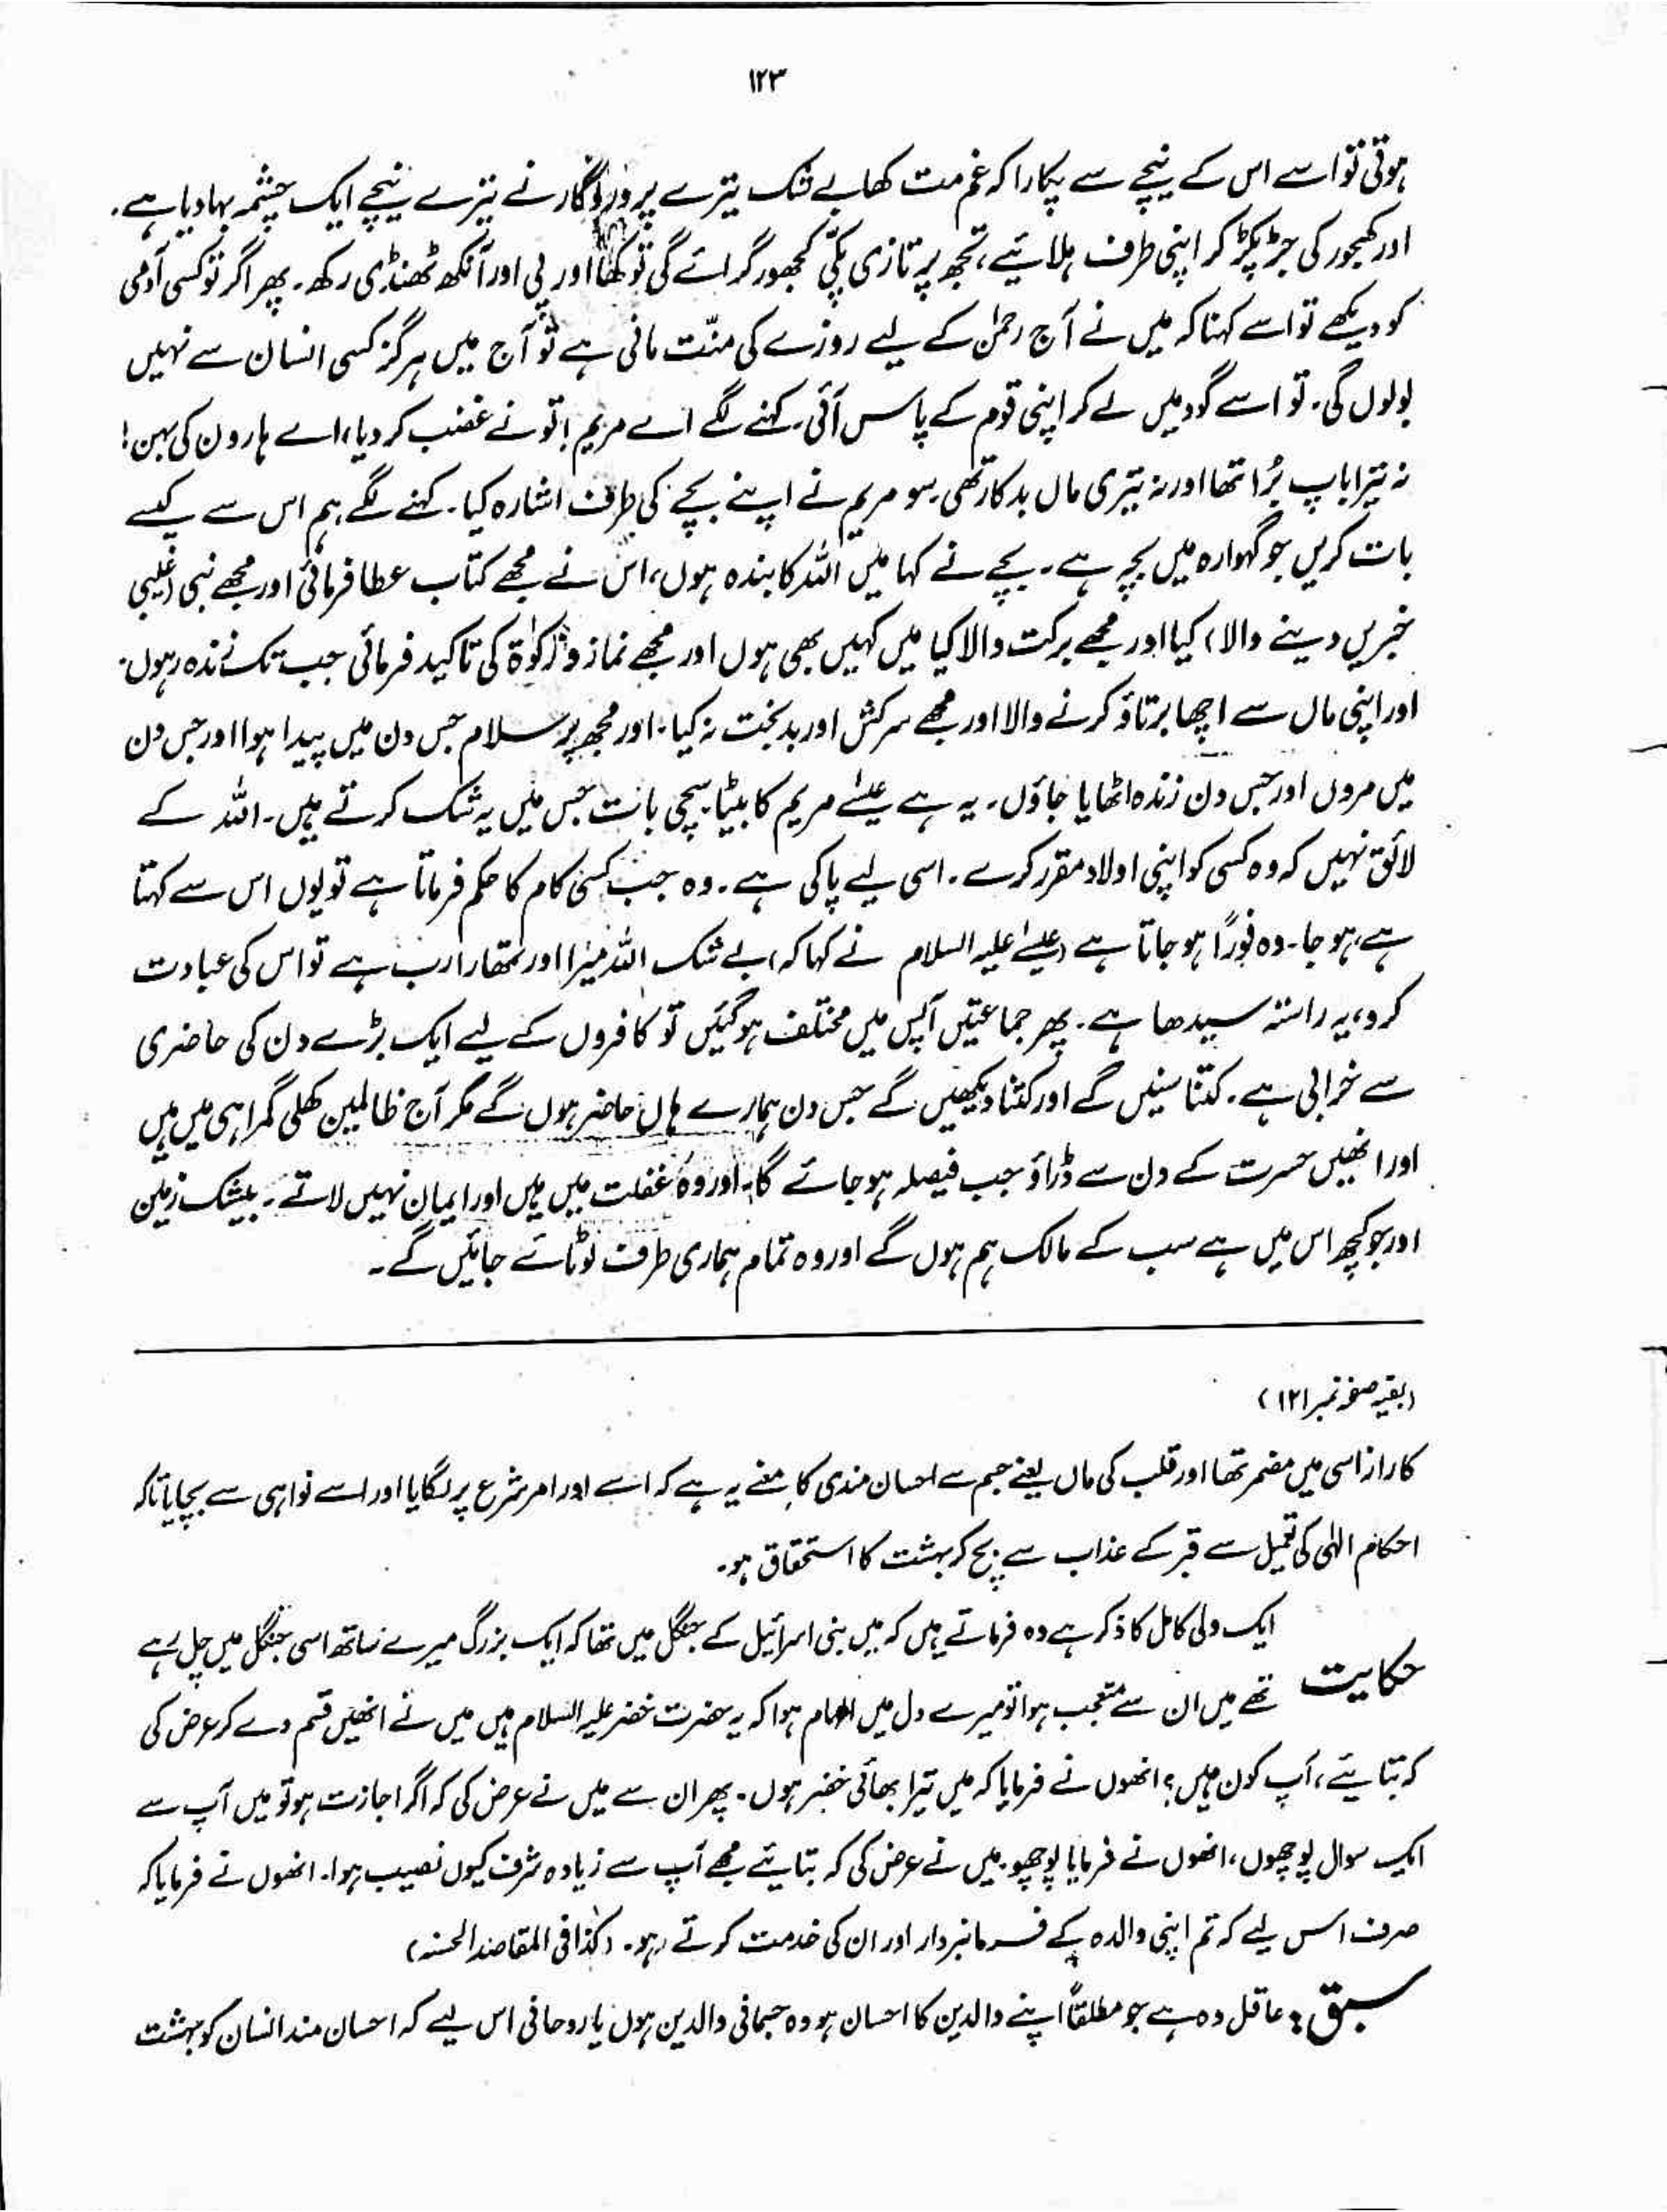 ۱۲۳
ہوتی تو اسے اس کے نیچے سے پکارا کہ غم مت کھا بے شک تیرے پروردگار نے تیرے نیچے ایک چشمہ بہا دیا ہے۔
اور کھجور کی جڑ پکڑ کر اپنی طرف ہلائیے، تجھ پر تازی پکّی کھجور گرائے گی تو کھا اور پی اور آنکھ ٹھنڈی رکھ۔ پھر اگر تو کسی آدمی
کو دیکھے تو اسے کہنا کہ میں نے آج رحمٰن کے لیے روزے کی منّت مانی ہے تو آج میں ہرگز کسی انسان سے نہیں
بولوں گی۔ تو اسے گود میں لے کر اپنی قوم کے پاس آئی۔ کہنے لگے اے مریم! تو نے غضب کر دیا، اے ہارون کی بہن!
نہ تیرا باپ بُرا تھا اور نہ تیری ماں بدکار تھی۔ سو مریم نے اپنے بچے کی طرف اشارہ کیا۔ کہنے لگے ہم اس سے کیسے
بات کریں جو گہوارہ میں بچہ ہے۔ بچے نے کہا میں اللہ کا بندہ ہوں، اس نے مجھے کتاب عطا فرمائی اور مجھے نبی (غیبی
خبریں دینے والا) کیا اور مجھے برکت والا کیا میں کہیں بھی ہوں اور مجھے نماز و زکوٰۃ کی تاکید فرمائی جب تک زندہ رہوں۔
اور اپنی ماں سے اچھا برتاؤ کرنے والا اور مجھے سرکش اور بدبخت نہ کیا۔ اور مجھ پر سلام جس دن میں پیدا ہوا اور جس دن
میں مروں اور جس دن زندہ اٹھایا جاؤں۔ یہ ہے عیسےٰ مریم کا بیٹا۔ سچی بات جس میں یہ شک کرتے ہیں۔ اللہ کے
لائق نہیں کہ وہ کسی کو اپنی اولاد مقرر کرے۔ اسی لیے پاکی ہے۔ وہ جب کسی کام کا حکم فرماتا ہے تو یوں اس سے کہتا
ہے، ہو جا۔ وہ فورًا ہو جاتا ہے (عیسےٰ علیہ السلام نے کہا کہ) بے شک اللہ میرا اور تمھارا رب ہے تو اس کی عبادت
کرو، یہ راستہ سیدھا ہے۔ پھر جماعتیں آپس میں مختلف ہو گئیں تو کافروں کے لیے ایک بڑے دن کی حاضری
سے خرابی ہے۔ کتنا سنیں گے اور کتنا دیکھیں گے جس دن ہمارے ہاں حاضر ہوں گے مگر آج ظالمین کھلی گمراہی میں ہیں
اور انھیں حسرت کے دن سے ڈراؤ جب فیصلہ ہو جائے گا۔ اور وہ غفلت میں ہیں اور ایمان نہیں لاتے۔ بیشک زمین
اور جو کچھ اس میں ہے سب کے مالک ہم ہوں گے اور وہ تمام ہماری طرف لوٹائے جائیں گے۔
(بقیہ صفحہ نمبر ۱۲۱)
کا راز اسی میں مضمر تھا اور قلب کی ماں یعنے جسم سے احسان مندی کا معنے یہ ہے کہ اسے اوامر شرع پر لگایا اور اسے نواہی سے بچایا تاکہ
احکام الٰہی کی تعمیل سے قبر کے عذاب سے بچ کر بہشت کا استحقاق ہو۔
ایک ولی کامل کا ذکر ہے وہ فرماتے ہیں کہ میں بنی اسرائیل کے جنگل میں تھا کہ ایک بزرگ میرے ساتھ اسی جنگل میں چل رہے
حکایت تھے میں ان سے متعجب ہوا تو میرے دل میں الہام ہوا کہ یہ حضرت خضر علیہ السلام ہیں میں نے انھیں قسم دے کر عرض کی
کہ بتایئے، آپ کون ہیں؟ انھوں نے فرمایا کہ میں تیرا بھائی خضر ہوں۔ پھر ان سے میں نے عرض کی کہ اگر اجازت ہو تو میں آپ سے
ایک سوال پوچھوں، انھوں نے فرمایا پوچھو۔ میں نے عرض کی کہ بتایئے مجھے آپ سے زیادہ شرف کیوں نصیب ہوا۔ انھوں نے فرمایا کہ
صرف اس لیے کہ تم اپنی والدہ کے فرمانبردار اور ان کی خدمت کرتے رہو۔ (کذا فی المقاصد الحسنہ)
سبق: عاقل وہ ہے جو مطلقاً اپنے والدین کا احسان ہو وہ جسمانی والدین ہوں یا روحانی اس لیے کہ احسان مند انسان کو بہشت